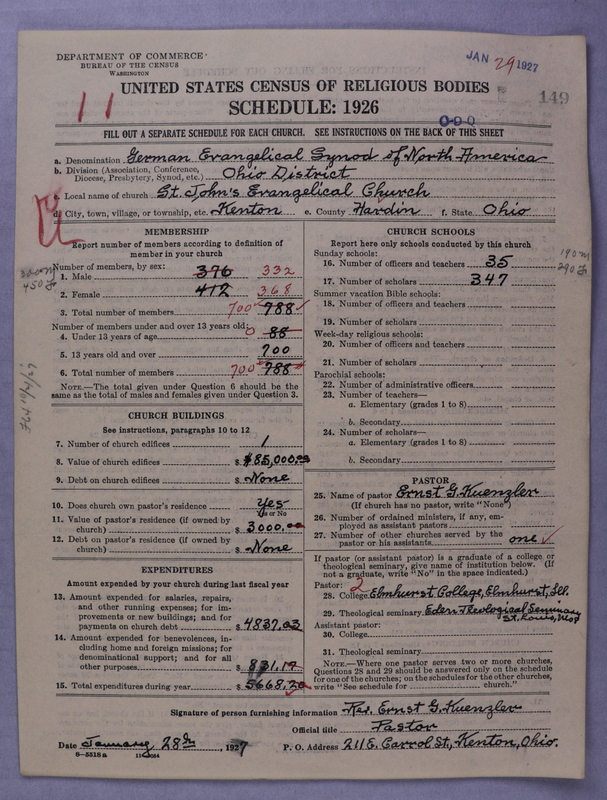 DEPARTMENT OF COMMERCE
BUREAU OF THE CENSUS
WASHINGTON
JAN 29 1927
UNITED STATES CENSUS OF RELIGIOUS BODIES
SCHEDULE: 1926
11
149
0-9-0
FILL OUT A SEPARATE SCHEDULE FOR EACH CHURCH. SEE INSTRUCTIONS ON THE BACK OF THIS SHEET
a. Denomination German Evangelical Synod of North America
b. Division (Association, Conference, Diocese, Presbytery, Synod, etc.) Ohio District
c. Local name of church St. John's Evangelical Church
d. City, town, village, or township, etc. Kenton e. County Hardin f. State Ohio
MEMBERSHIP
Report number of members according to definition of member in your church
Number of members, by sex:
1. Male 376 332
2. Female 412 368
3. Total number of members 700 788
Number of members under and over 13 years old:
4. Under 13 years of age 0 88
5. 13 years old and over 700
6. Total number of members 700 788
NOTE.—The total given under Question 6 should be the same as the total of males and females given under Question 3.
CHURCH BUILDINGS
See instructions, paragraphs 10 to 12
7. Number of church edifices 1
8. Value of church edifices $ $85,000.00
9. Debt on church edifices $ None
10. Does church own pastor's residence Yes
Yes or No
11. Value of pastor's residence (if owned by church) $ 3000.00
12. Debt on pastor's residence (if owned by church) $ None
EXPENDITURES
Amount expended by your church during last fiscal year
13. Amount expended for salaries, repairs, and other running expenses; for improvements or new buildings; and for payments on church debt $ 4837.03
14. Amount expended for benevolences, including home and foreign missions; for denominational support; and for all other purposes $ 831.17
15. Total expenditures during year $ 5668.20
CHURCH SCHOOLS
Report here only schools conducted by this church
Sunday schools:
16. Number of officers and teachers 35
17. Number of scholars 347
190 m
Summer vacation Bible schools:
18. Number of officers and teachers
19. Number of scholars
Week-day religious schools:
20. Number of officers and teachers
21. Number of scholars
Parochial schools:
22. Number of administrative officers
23. Number of teachers—
a. Elementary (grades 1 to 8)
b. Secondary
24. Number of scholars—
a. Elementary (grades 1 to 8)
b. Secondary
PASTOR
25. Name of pastor Ernst G. Kuenzler
(If church has no pastor, write "None")
26. Number of ordained ministers, if any, employed as assistant pastors
27. Number of other churches served by the pastor or his assistants one
If pastor (or assistant pastor) is a graduate of a college or theological seminary, give name of institution below. (If not a graduate, write "No" in the space indicated.)
Pastor: 2
28. College Elmhurst College, Elmhurst, Ill.
29. Theological seminary Eden Theological Seminary St. Louis, Mo
Assistant pastor:
30. College
31. Theological seminary
NOTE.—Where one pastor serves two or more churches, Questions 28 and 29 should be answered only on the schedule for one of the churches; on the schedules for the other churches, write "See schedule for church."
Signature of person furnishing information Rev. Ernst G. Kuenzler
Official title Pastor
Date January 28th, 1927 P. O. Address 211 E. Carrol St., Kenton, Ohio.
8-5518 a